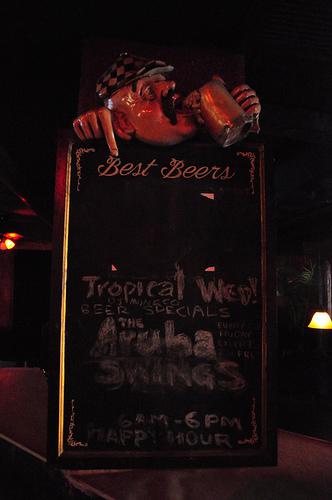 Best Beers
Tropical Wed!
DJ
BEER SPECIALS
THE
Aruba
SWINGS
6AM-6PM
HAPPY HOUR